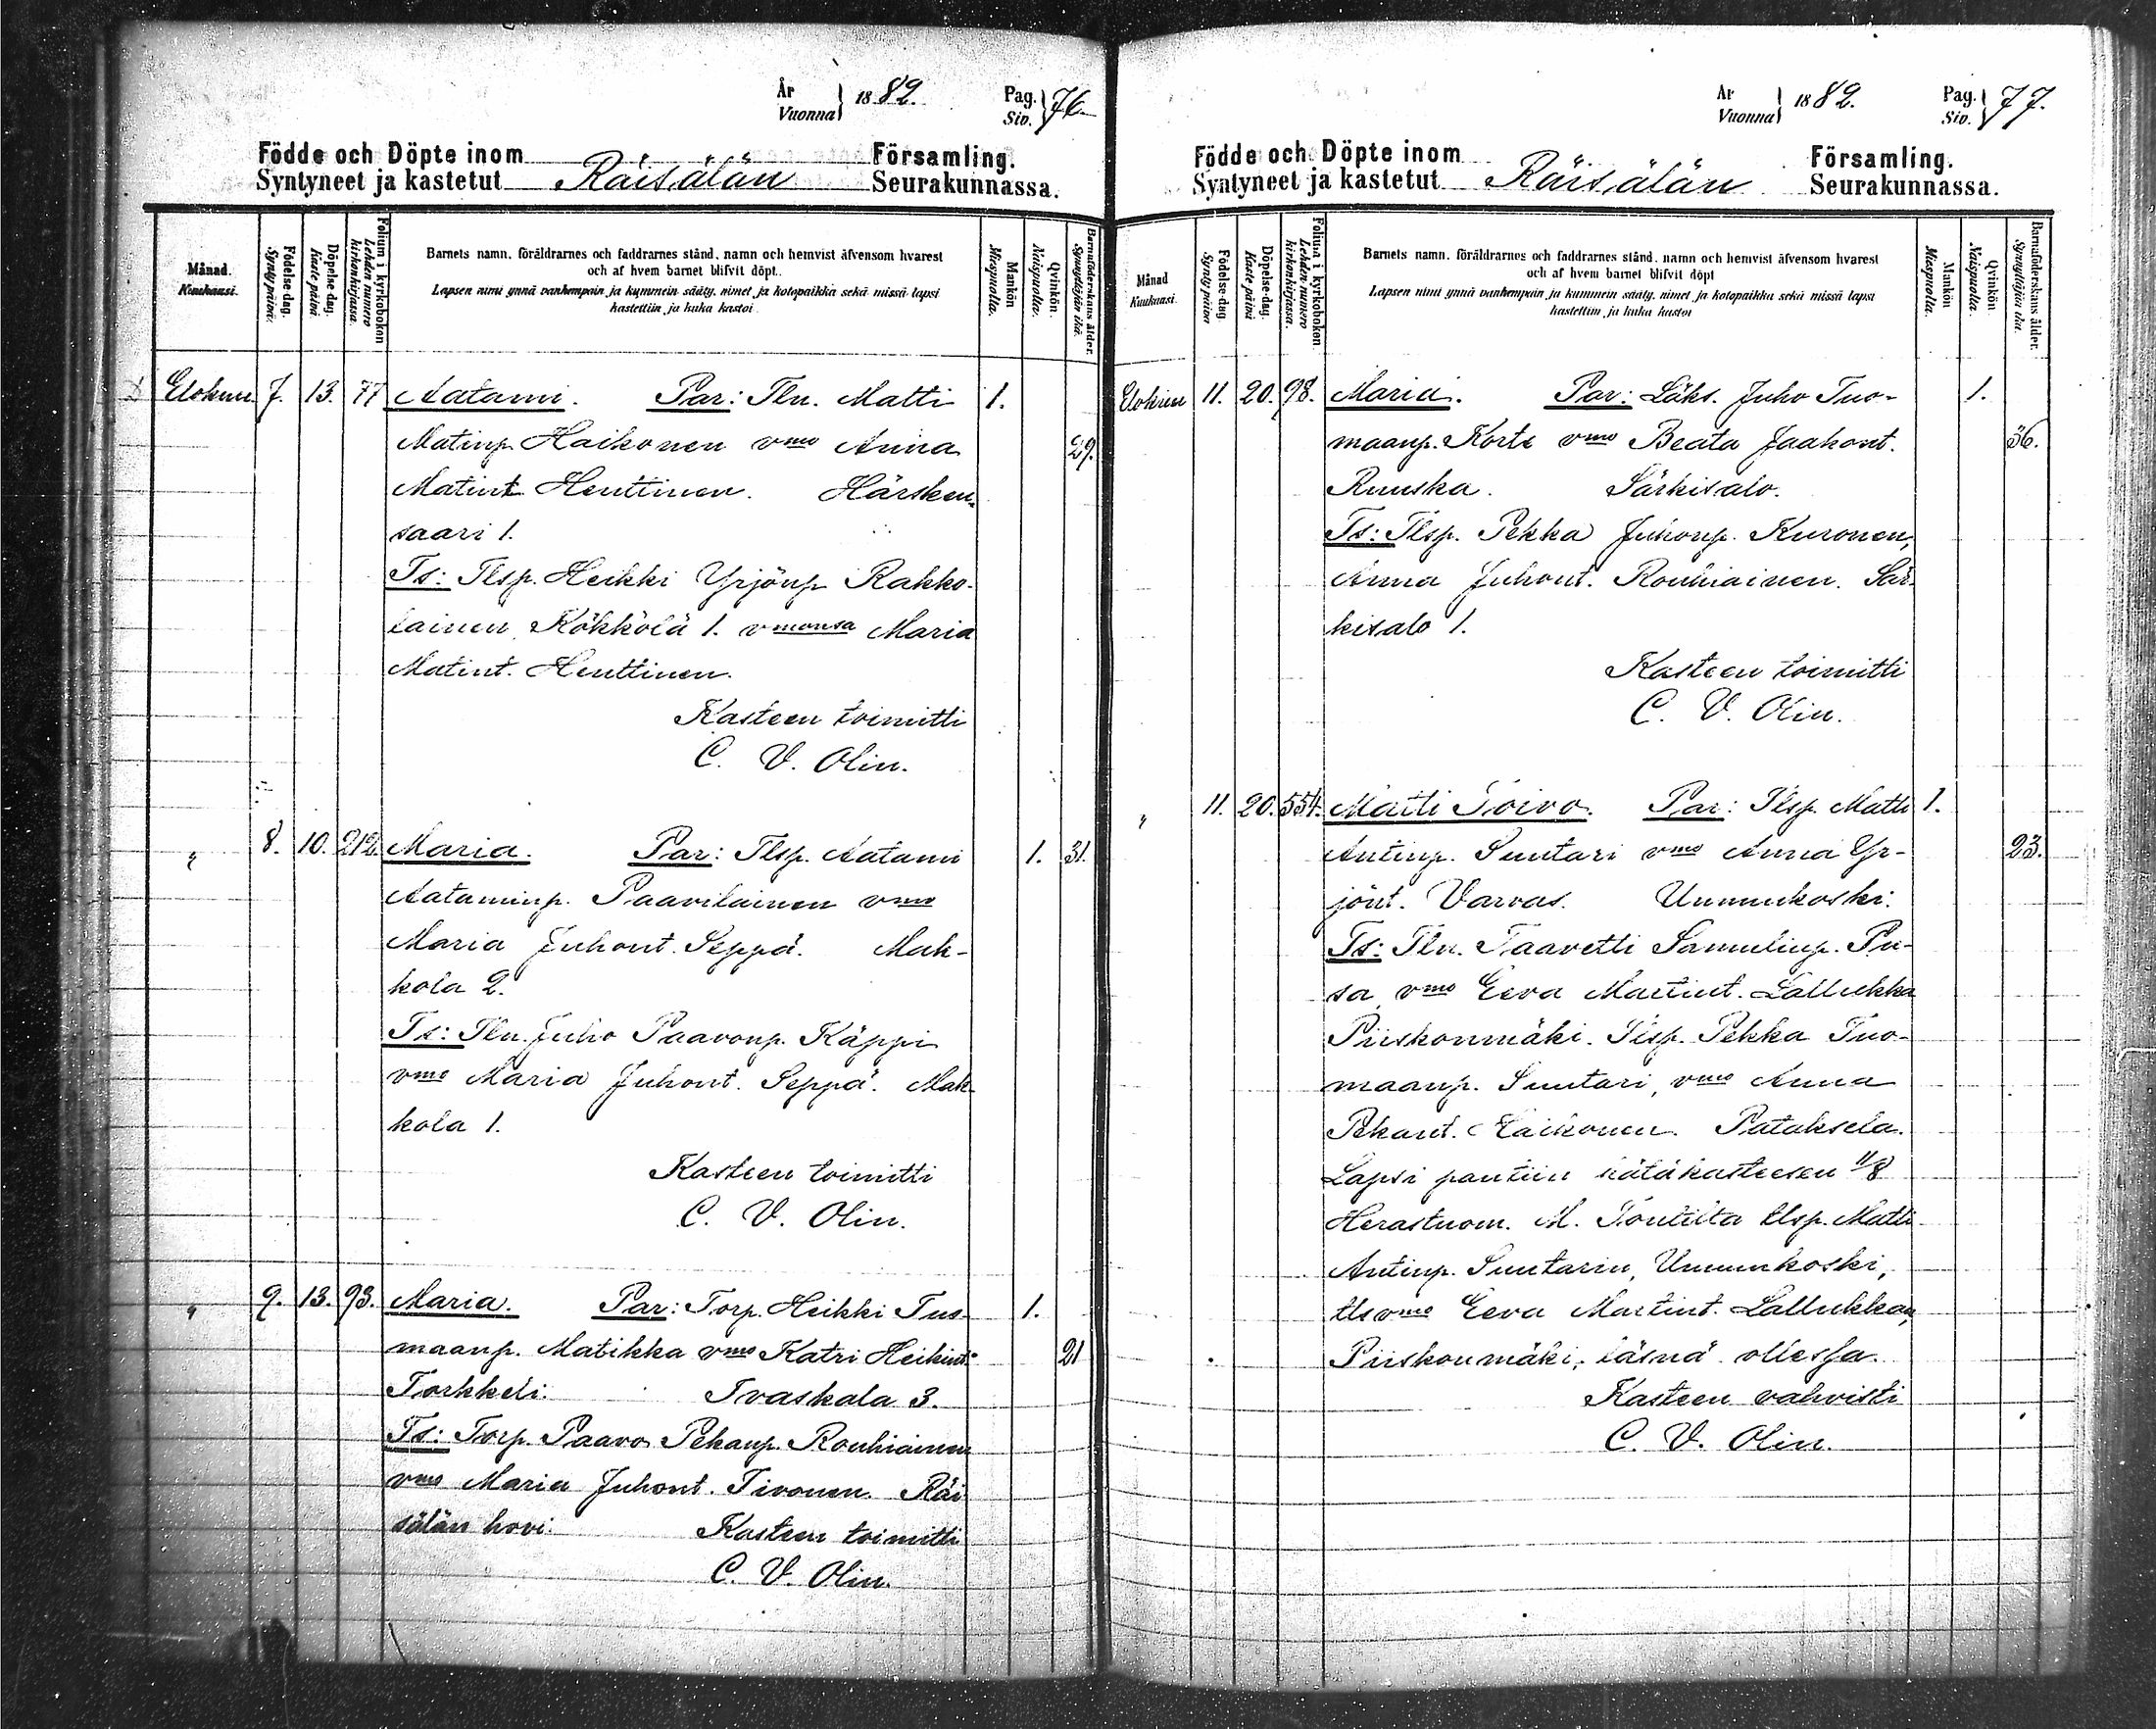 År
Vuonna } 1882.
Pag.
Siv. } 76.
Födde och Döpte inom Församling.
Syntyneet ja kastetut Räisälän Seurakunnassa.
Månad.
Kuukausi.
Födelse dag.
Syntypäivä.
Döpelse dag.
Kaste päivä
Folium i kyrkobokon
Lehden numero
kirkonkirjassa.
Barnets namn, föräldrarnes och faddrarnes stånd, namn och hemvist äfvensom hvarest
och af hvem barnet blifvit döpt.
Lapsen nimi ynnä vanhempain ja kummein sääty, nimet ja kotopaikka sekä missä lapsi
kastettiin ja kuka kastoi
Mankön
Miespuolta.
Qvinkön.
Naispuolta.
Barnaföderskans ålder.
Synnyttäjän ikä.
Elokuu 7. 13. 77 Aatami. Par: Tln. Matti 1.
Matinp. Haikonen vmo Anna 29.
Matint. Henttinen. Härsken-
saari 1.
Ts: Tlsp. Heikki Yrjönp. Rakko-
lainen, Kökkölä 1. vmonsa Maria
Matint. Henttinen.
Kasteen toimitti
C. V. Olin.
" 8. 10. 212. Maria. Par: Tlsp. Aatami 1. 31.
Aataminp. Paavilainen vmo
Maria Juhont. Seppä. Mak-
kola 2.
Ts: Tln. Juho Paavonp. Käppi
vmo Maria Juhont. Seppä. Mak-
kola 1.
Kasteen toimitti
C. V. Olin.
" 9. 13. 93. Maria. Par: Torp. Heikki Tuo- 1.
maanp. Matikka vmo Katri Heikint. 21
Torkkeli. Ivaskala 3.
Ts: Torp. Paavo Pekanp. Rouhiainen
vmo Maria Juhont. Tivonen. Räi
sälän hovi. Kasteen toimitti
C. V. Olin.
År
Vuonna } 1882.
Pag.
Siv. } 77.
Födde och Döpte inom Församling.
Syntyneet ja kastetut Räisälän Seurakunnassa.
Månad
Kuukausi
Födelse-dag.
Synty päivä
Döpelse-dag.
Kaste päivä
Folium i kyrkobokon.
Lehden numero
kirkonkirjassa.
Barnets namn, föräldrarnes och faddrarnes stånd, namn och hemvist äfvensom hvarest
och af hvem barnet blifvit döpt
Lapsen nimi ynnä vanhempain ja kummein sääty, nimet ja kotopaikka sekä missä lapsi
kastettiin ja kuka kastoi
Mankön
Miespuolta.
Qvinkön
Naispuolta.
Barnaföderskans ålder.
Synnyttäjän ikä.
Elokuu 11. 20. 98. Maria. Par: Läks. Juho Tuo- 1.
maanp. Korte vmo Beata Jaakont. 36.
Ruuska. Särkisalo.
Ts: Tlsp. Pekka Juhonp. Kuronen,
Anna Juhont. Rouhiainen. Sär-
kisalo 1.
Kasteen toimitti
C. V. Olin.
" 11. 20. 554. Matti Toivo. Par: Tlsp. Matti 1.
Antinp. Suutari vmo Anna Yr- 23.
jönt. Varvas. Unnunkoski.
Ts: Tln. Taavetti Samulinp. Pu-
sa, vmo Eeva Martint. Lallukka
Piiskonmäki. Tlsp. Pekka Tuo-
maanp. Suutari, vmo Anna
Pekant. Haikonen. Pataksela.
Lapsi pantiin hätäkasteesen 11/8
Herastuom. M. Tontilta tlsp. Matti
Antinp. Suutarin, Unnunkoski,
tls vmo Eeva Martint. Lallukkan,
Piiskonmäki, läsnä ollessa.
Kasteen vahvisti
C. V. Olin.